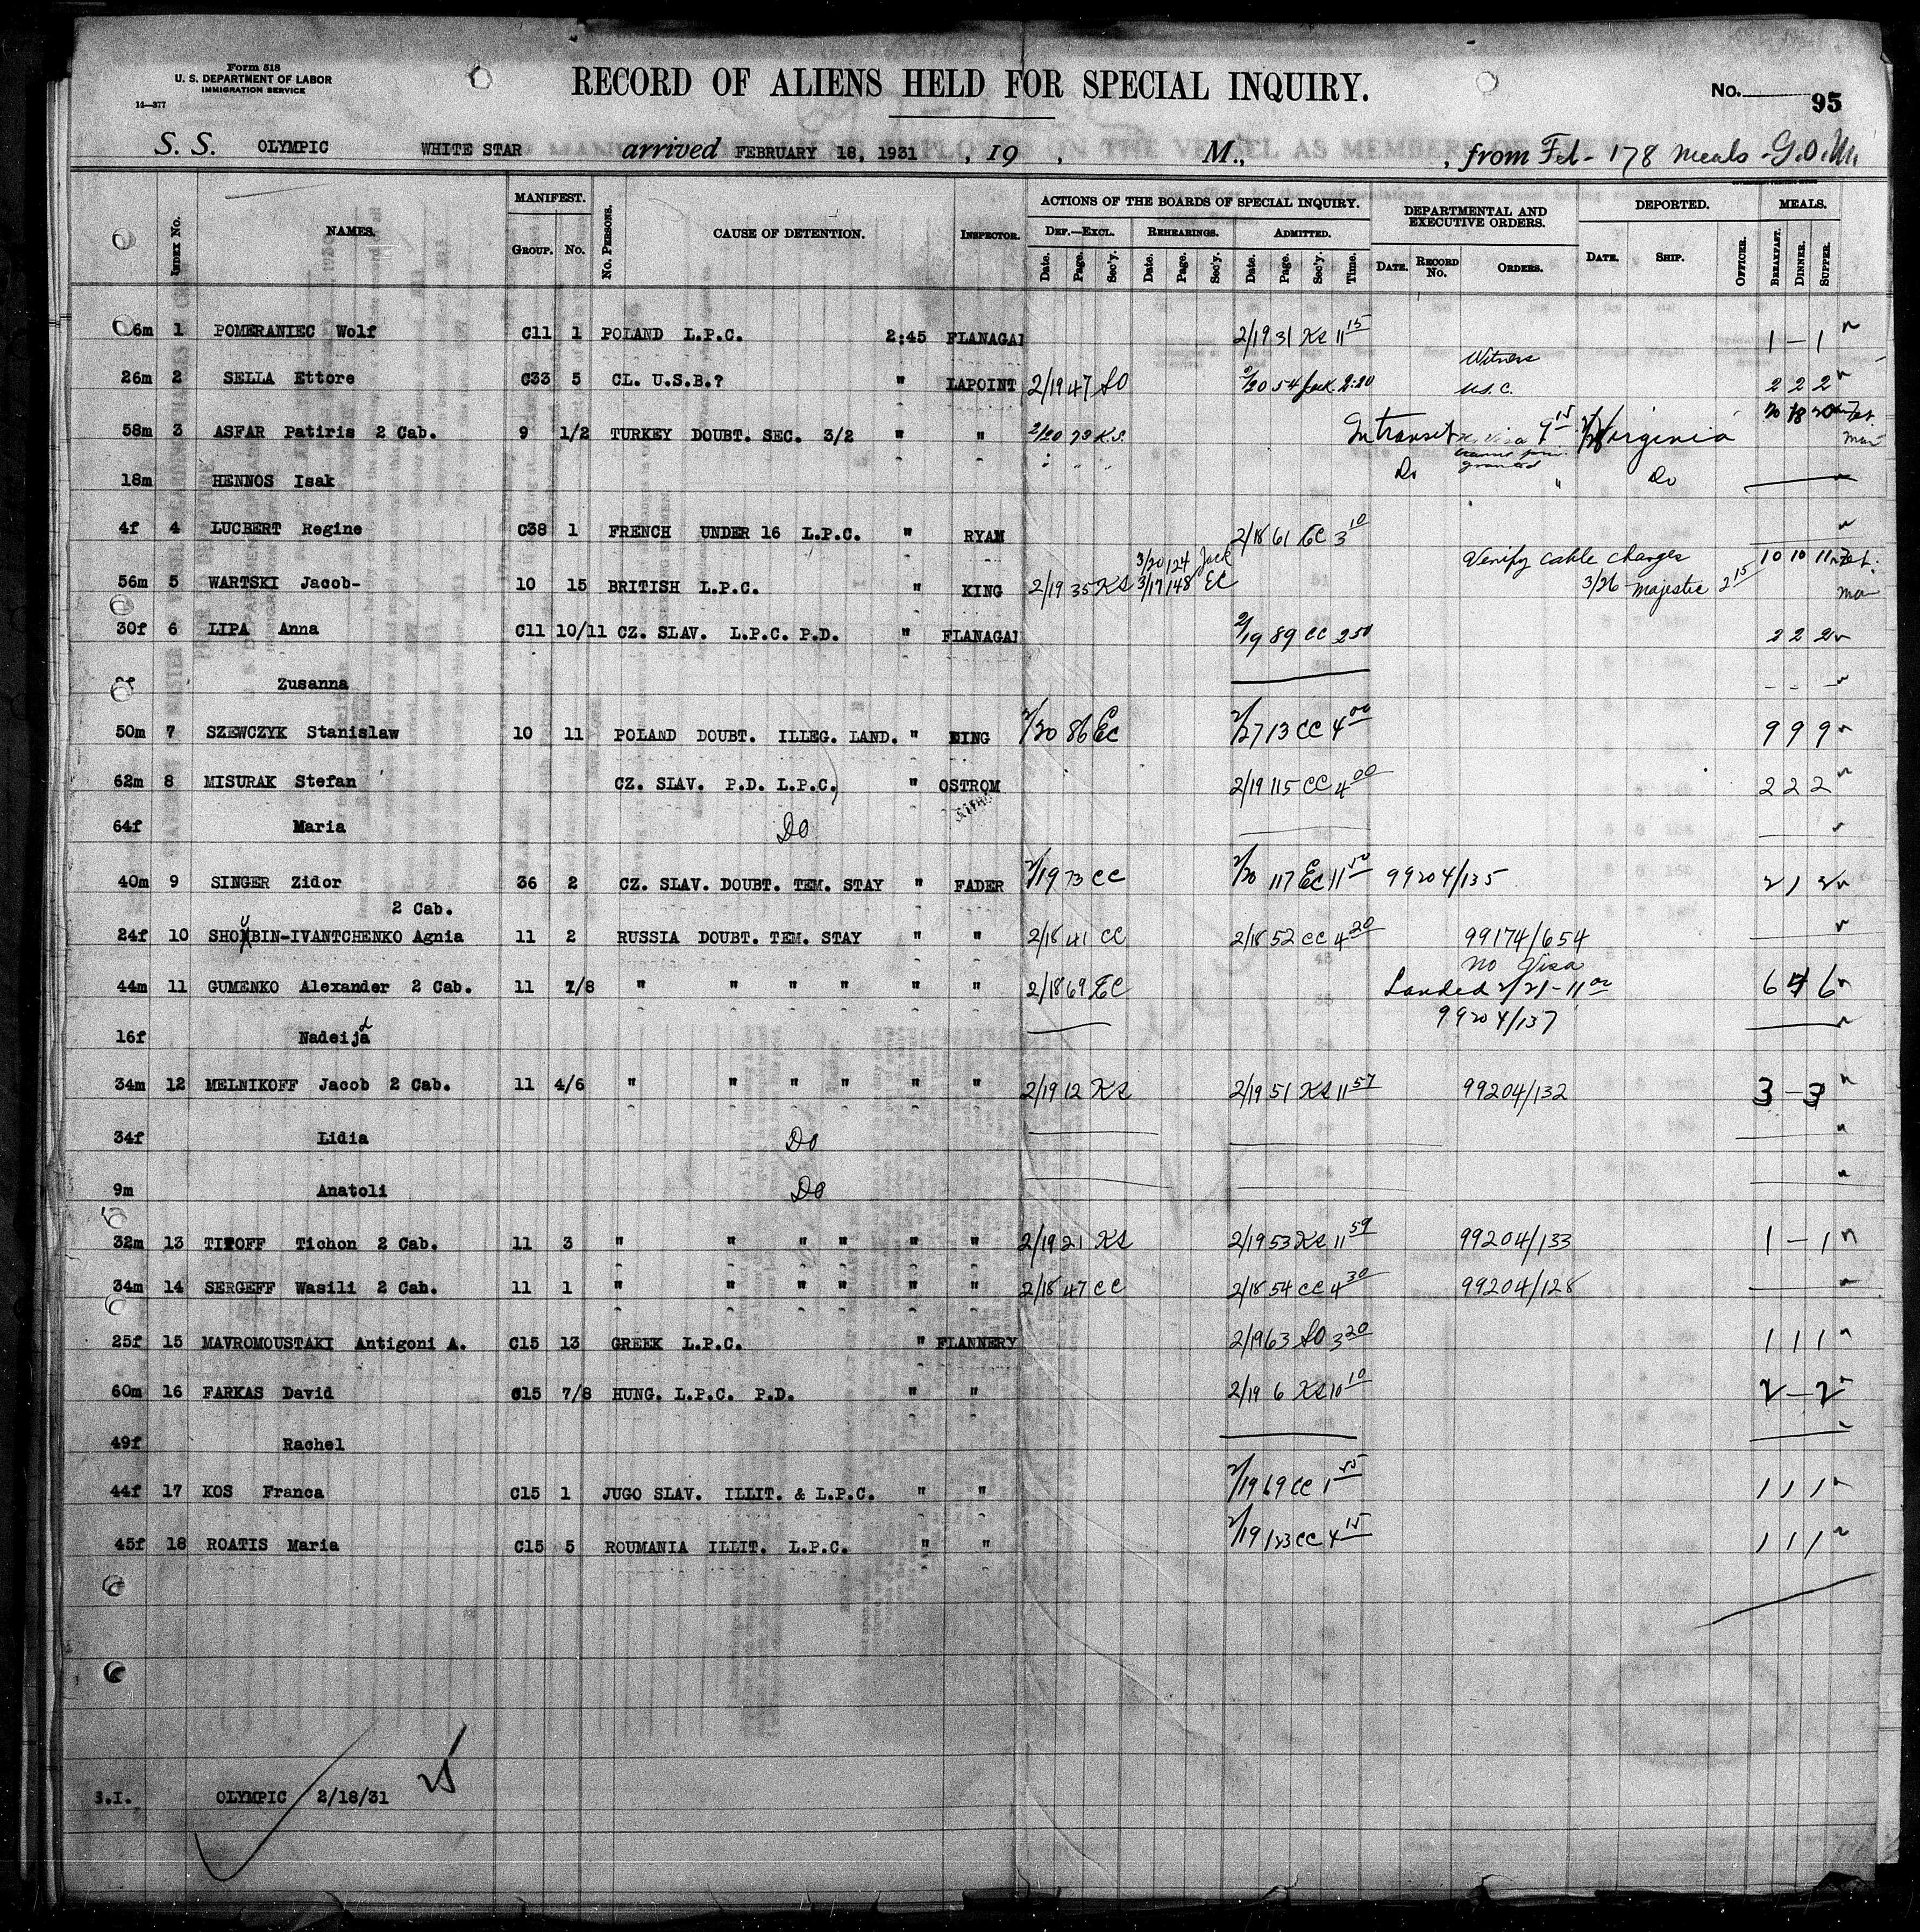 Form 518
U. S. DEPARTMENT OF LABOR
IMMIGRATION SERVICE
14—377
RECORD OF ALIENS HELD FOR SPECIAL INQUIRY.
No. 95
S. S. OLYMPIC WHITE STAR arrived FEBRUARY 18, 1931 , 19 , M., , from Feb - 178 meals - G.O.M.
INDEX No. NAMES. MANIFEST. GROUP. No. No. PERSONS. CAUSE OF DETENTION. INSPECTOR. ACTIONS OF THE BOARDS OF SPECIAL INQUIRY. DEF.—EXCL. Date. Page. Sec'y. REHEARINGS. Date. Page. Sec'y. ADMITTED. Date. Page. Sec'y. Time. DEPARTMENTAL AND EXECUTIVE ORDERS. DATE. RECORD No. ORDERS. DEPORTED. DATE. SHIP. OFFICER. MEALS. BREAKFAST. DINNER. SUPPER.
6m 1 POMERANIEC Wolf C11 1 POLAND L.P.C. 2:45 FLANAGAN 2/19 31 KS 11 15 1 – 1
Witness
26m 2 SELLA Ettore C33 5 CL. U.S.B.? " LAPOINT 2/19 47 SO 2/20 54 Jack 2:20 U.S.C. 2 2 2
58m 3 ASFAR Patiris 2 Cab. 9 1/2 TURKEY DOUBT. SEC. 3/2 " " 2/20 73 K.S. In transit 9 15 Virginia 20 18 20
granted
18m HENNOS Isak Do " Do
4f 4 LUCBERT Regine C38 1 FRENCH UNDER 16 L.P.C. " RYAN 2/18 61 EC 3 10
3/20 124 Jack Verify cable charges 10 10 11 Feb.
56m 5 WARTSKI Jacob- 10 15 BRITISH L.P.C. " KING 2/19 35 KS 3/17 148 EC 3/26 - Majestic 2 15 Mar
30f 6 LIPA Anna C11 10/11 CZ. SLAV. L.P.C. P.D. " FLANAGAN 2/19 89 CC 2 50 2 2 2
Zusanna
50m 7 SZEWCZYK Stanislaw 10 11 POLAND DOUBT. ILLEG. LAND. " KING 2/20 86 EC 2/27 13 CC 4 00 9 9 9
62m 8 MISURAK Stefan CZ. SLAV. P.D. L.P.C. " OSTROM 2/19 115 CC 4 00 2 2 2
64f Maria Do
40m 9 SINGER Zidor 36 2 CZ. SLAV. DOUBT. TEM. STAY " FADER 2/19 73 CC 2/20 117 EC 11 50 99204/135 2 1 2
2 Cab.
24f 10 SHOUBIN-IVANTCHENKO Agnia 11 2 RUSSIA DOUBT. TEM. STAY " " 2/18 41 CC 2/18 52 CC 4 20 99174/654
no Visa
44m 11 GUMENKO Alexander 2 Cab. 11 7/8 " " " " " " 2/18 69 EC Landed 2/21 - 11 00 6 4 6
99204/137
16f Nadeija
34m 12 MELNIKOFF Jacob 2 Cab. 11 4/6 " " " " " " 2/19 12 KS 2/19 51 KS 11 57 99204/132 3 – 3
34f Lidia Do
9m Anatoli Do
32m 13 TITOFF Tichon 2 Cab. 11 3 " " " " " " 2/19 21 KS 2/19 53 KS 11 59 99204/133 1 – 1
34m 14 SERGEFF Wasili 2 Cab. 11 1 " " " " " " 2/18 47 CC 2/18 54 CC 4 30 99204/128
25f 15 MAVROMOUSTAKI Antigoni A. C15 13 GREEK L.P.C. " FLANNERY 2/19 63 SO 3 20 1 1 1
60m 16 FARKAS David C15 7/8 HUNG. L.P.C. P.D. " " 2/19 6 KS 10 10 2 – 2
49f Rachel
44f 17 KOS Franca C15 1 JUGO SLAV. ILLIT. & L.P.C. " " 2/19 69 CC 1 55 1 1 1
45f 18 ROATIS Maria C15 5 ROUMANIA ILLIT. L.P.C. " " 2/19 123 CC 4 15 1 1 1
S.I. OLYMPIC 2/18/31 25